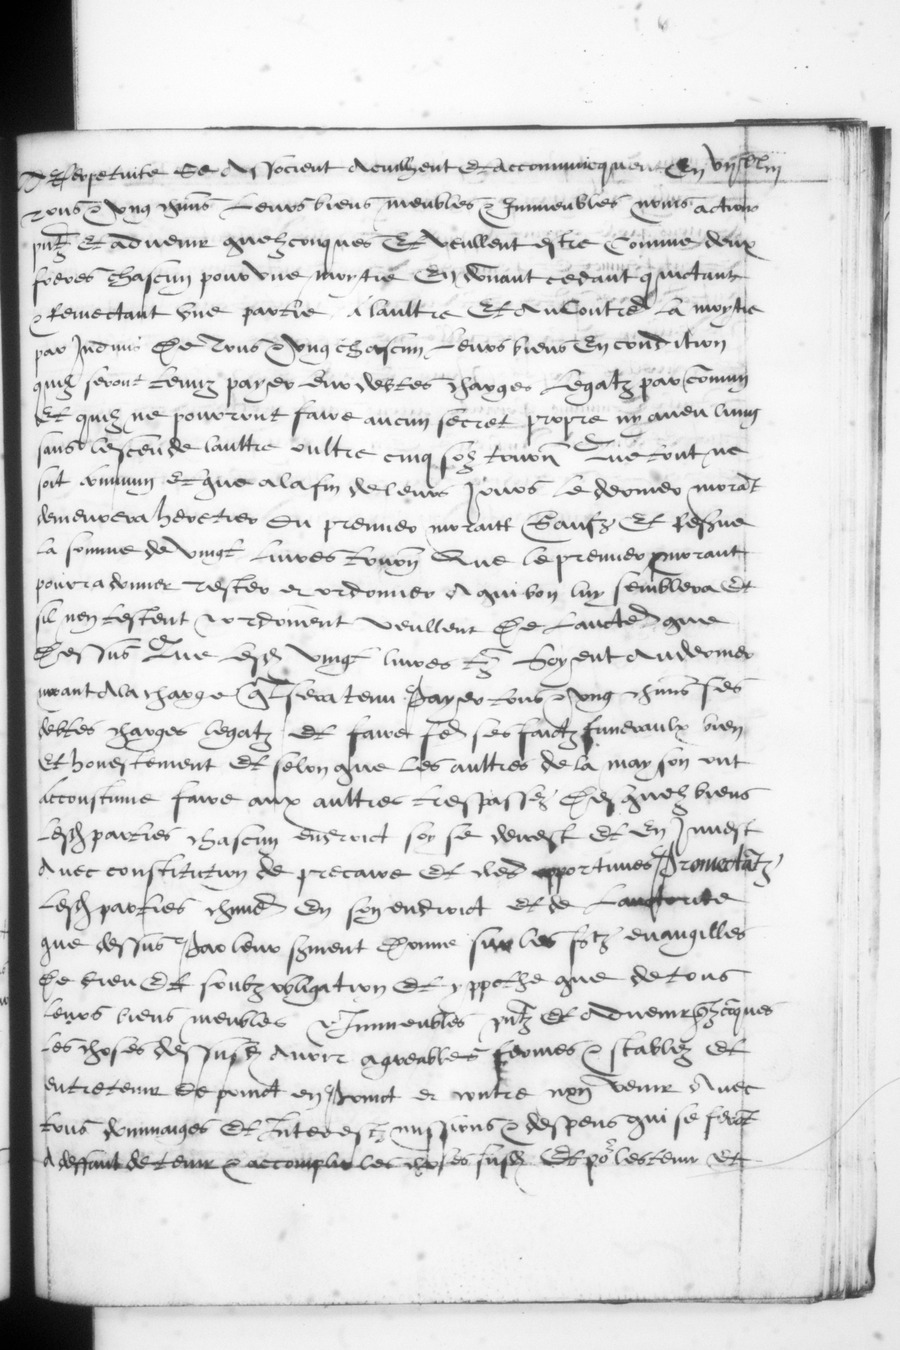 A perpetuite Se Associent Acuillient Et accommunicquent En
Tous & Ung chũns Leurs biens meubles & Immeubles noms actions
pñtz Et advenir quelzconques Et veullent estre Comme deux
freres chascun pour une moytie En donant cedant quictant
& Remectant une partie A laultre Et Au Contre La moytie
par Indivis De Tous & Ung chascun Leurs biens En condition
quilz seront tenuz payer leur debtes charges Legatz par comun
Et quilz ne pourront faire aucun secret propre ny aveu lung
sans de laultre oultre cinq solz tourñ Que tout ne
soit commun Et que a la fin de leurs Jours Le dernier morãt
demeurera heretier Du premier morant Saufz Et
La somme de vingt Livres tourñ Que le premier morant
pourra donner Tester et ordonner A qui bon luy semblera Et
sil nen testent & ordonnent veullent De que
Dessus Que Lesd vingt livres tz Soyent Au dernier
morant A la charge Q̃l sera tenu Payer tous & Ung chũns ses
debtes charges legatz Et faire ses faictz funeraulx bien
Et honestement Et selon que Les aultres de la mayson ont
accoustume faire aux aultres trespassez Desquelz biens
Lesd parties chascun endroict soy se devest Et En Invest
Avec constitution de precaire Et cles opportunes Promectãtz
Lesd parties En son endroict Et de Lauctorite
que dessus Par leur Donne sur les evangilles
De dieu Et soubz obligation Et yppotheque de tous
Leurs biens meubles & Immeubles pñtz Et Advenir
Les choses dessusd Avoir agreables fermes & stables Et
entretenir De poinct en Poinct et contre non venir Avec
tous dommaiges Et Interestz missions & despens qui se ferõt
A deffaut de tenir & accomplir les choses susd Et põ les tenir Et